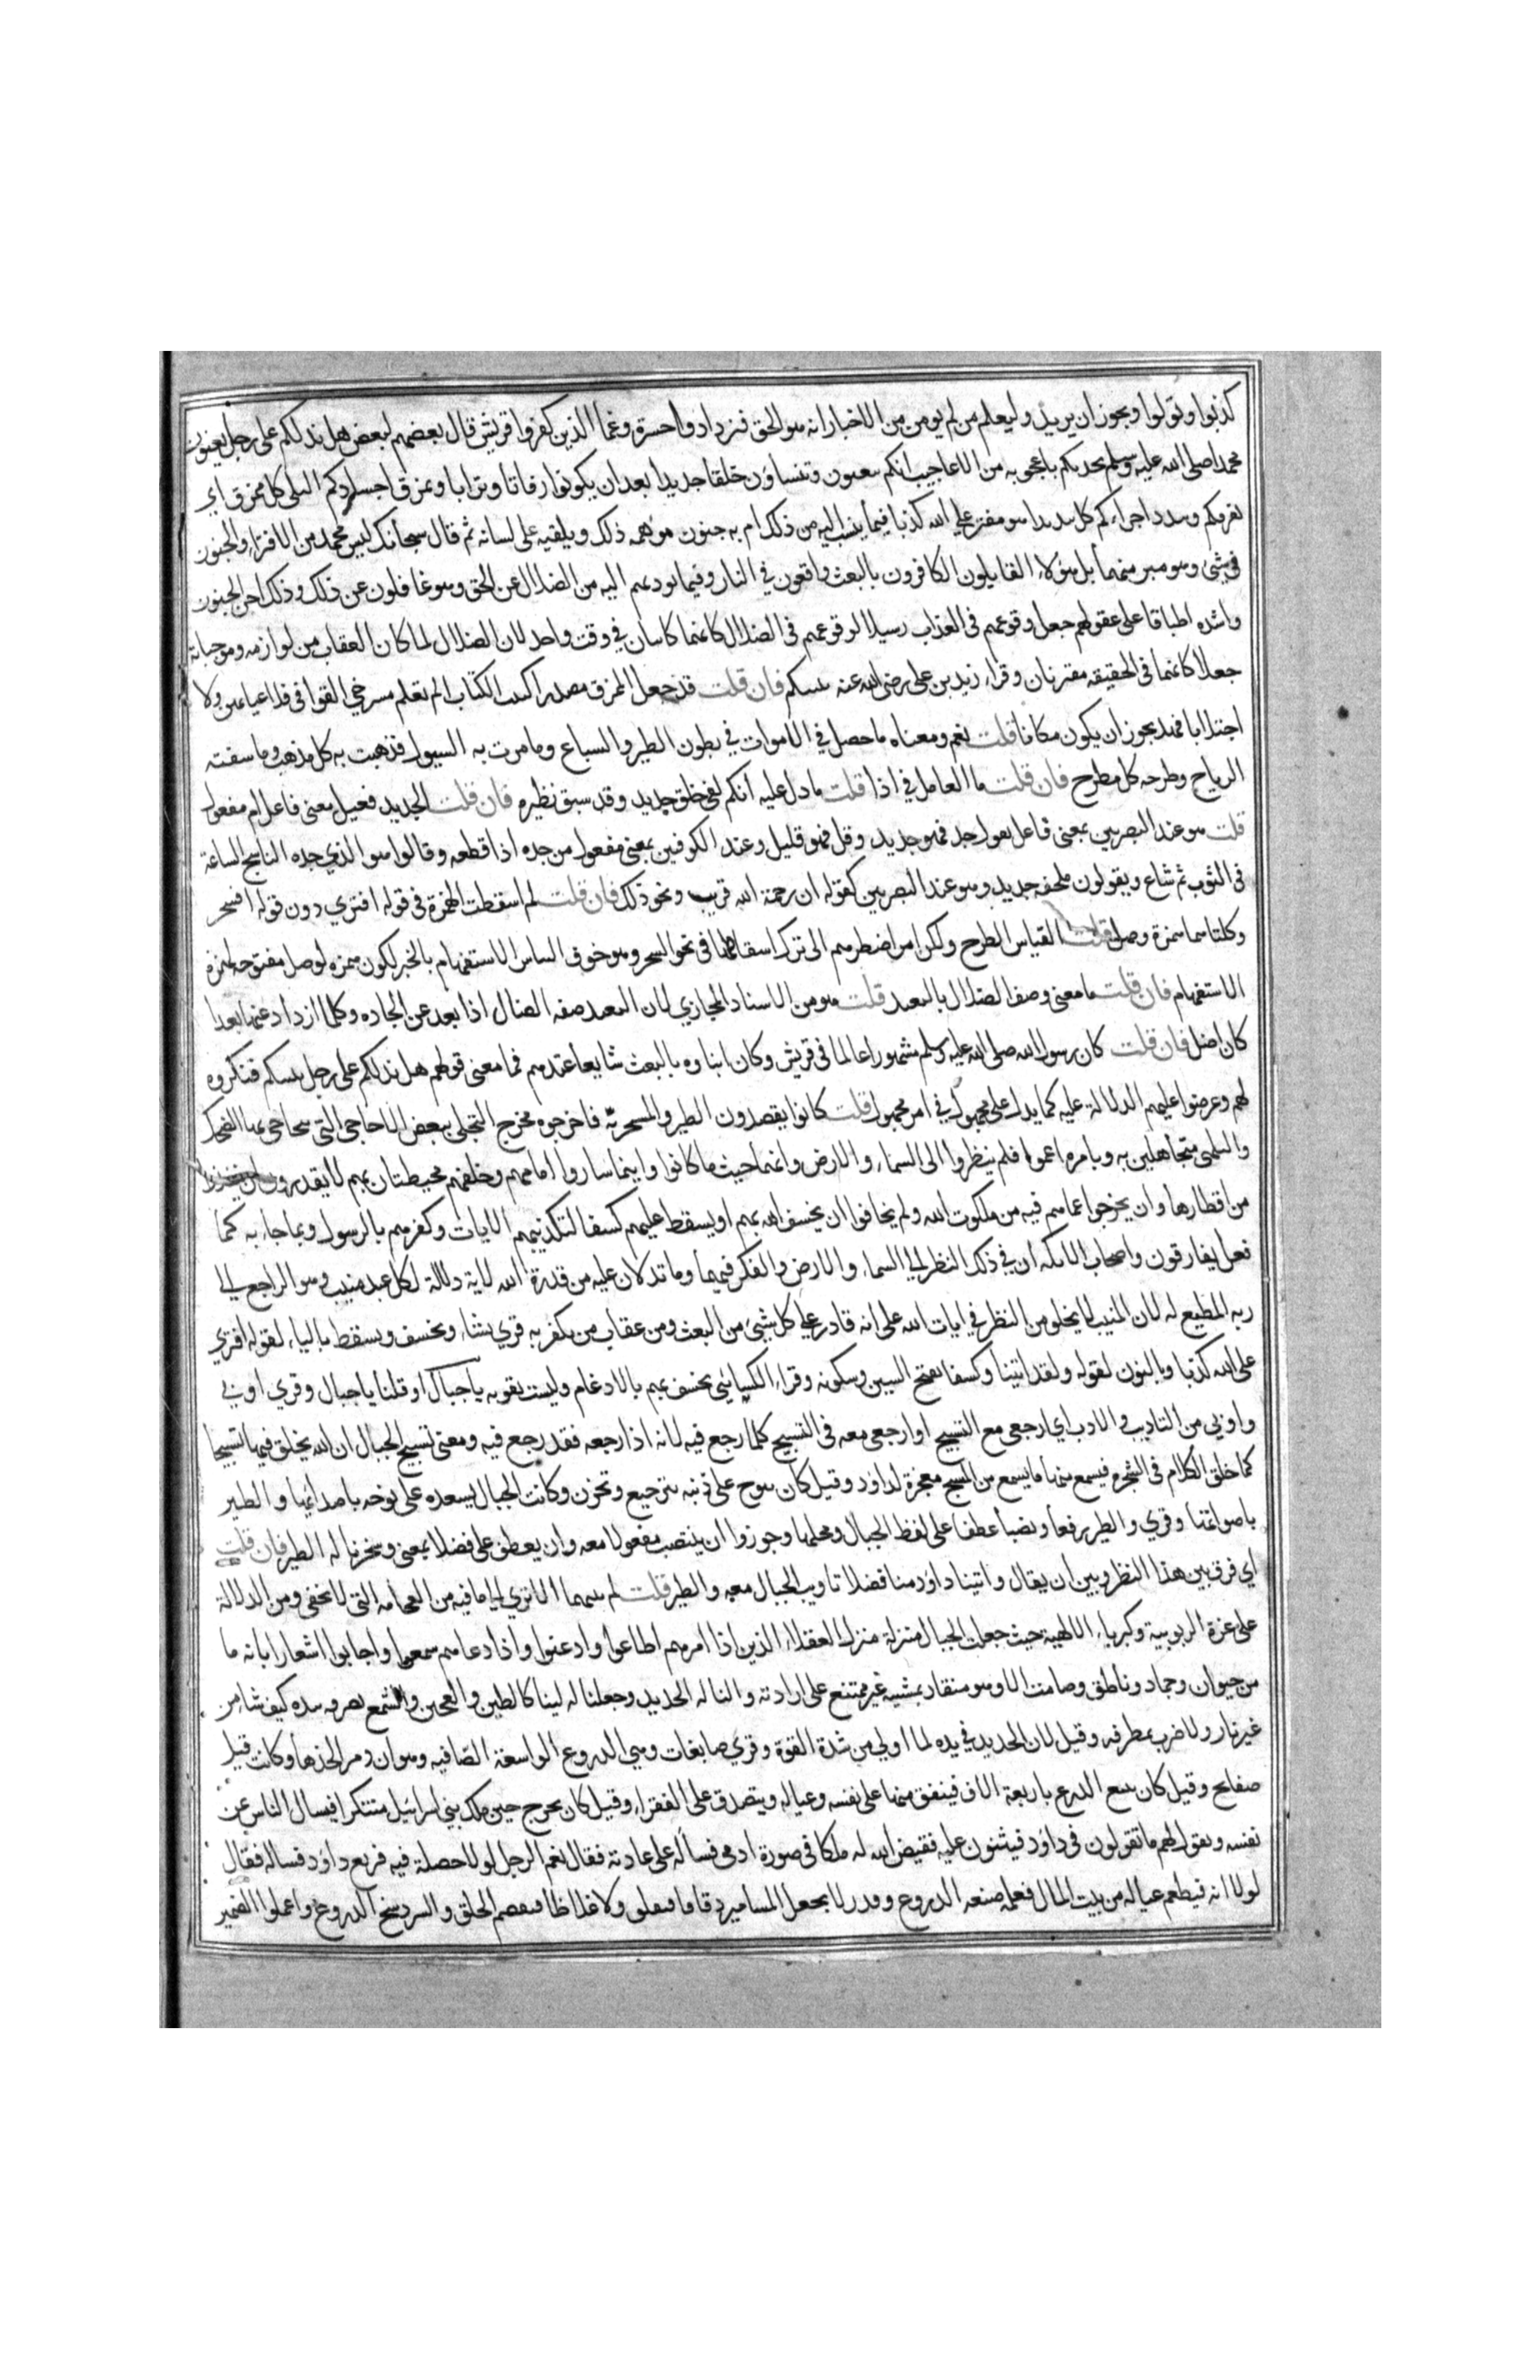 كذبوا وتولوا ويجوز ان يريد وليعلم من لم يومن من الاخبار انه هو الحق فيزدادوا حسرة وغما الذين كفروا قريش قال بعضهم لبعض هل ندلكم على رجل يعنون
محمدا صلى الله عليه وسلم يحدثكم باعجوبه من الاعاجيب انكم تبعثون وتنشاؤن خلقا جديدا بعد ان يكونوا رفاتا وترابا ويمزق اجسادكم البلى كل ممزق اي
يفرقكم ويبدد اجزاءكم كل تبديد اهو مفتر على الله كذبا فيما ينسب اليه من ذلك ام به جنون يوهمه ذلك ويلقيه على لسانه ثم قال سبحانه ليس محمد من الافتراء والجنون
في شيء وهو مبرء منهما بل هؤلاء القايلون الكافرون بالبعث واقعون في النار وفيما يوديهم اليه من الضلال عن الحق وهو غافلون عن ذلك وذلك اجن الجنون
واشده اطباقا على عقولهم جعل وقوعهم في العذاب رسيلا لوقوعهم في الضلال كانهما كاينان في وقت واحد لان الضلال لما كان العقاب من لوازمه وموجباته
جعلا كانهما في الحقيقه مقترنان وقراء زيد بن على رضى الله عنه ينبيكم فان قلت قد جعل الممزق مصدرا كبيت الكتاب الم تعلم مسرحي القوافى فلا عيابهن ولا
اجتلابا فهل يجوز ان يكون مكانا قلت نعم ومعناه ما حصل في الاموات في بطون الطير والسباع وما مرت به السيول فذهبت به كل مذهب وما سفته
الرياح وطرحه كل مطرح فان قلت ما العامل في اذا قلت ما دل عليه انكم لفي خلق جديد وقد سبق نظيره فان قلت الجديد فعيل بمعنى فاعل ام مفعول
قلت هو عند البصريين بمعنى فاعل يقول جد فهو جديد وقل فهو قليل وعند الكوفين بمعنى مفعول من جده اذا قطعه وقالوا هو الذي جده الناسج الساعة
في الثوب ثم شاع ويقولون ملحفه جديد وهو عند البصريين كقوله ان رحمة الله قريب ونحو ذلك فان قلت لم اسقطت الهمزة في قوله افتري دون قوله السحر
وكلتاهما همزة وصل قلت القياس الطرح ولكن امر اضطرهم الى ترك اسقاطها في نحو السحر وهو خوف التباس الاستفهام بالخبر لكون همزه لوصل مفتوحه كهمزة
الاستفهام فان قلت ما معنى وصف الضلال بالبعيد قلت هو من الاسناد المجازي لان البعيد صفه الضال اذا بعد عن الجاده وكلما ازداد عنها بعدا
كان اضل فان قلت كان رسول الله صلى الله عليه وسلم مشهورا عالما في قريش وكان انباوه بالبعث شايعا عندهم فما معنى قولهم هل ندلكم على رجل ينبيكم فنكروه
لهم وعرضوا عليهم الدلالة عليه كما يدل على مجهول في امر مجهول قلت كانوا يقصدون الطنز والسخرية فاخرجوه مخرج التحلي ببعض الاحاجي التي يتحاجى بها للضحك
والتلهى متجاهلين به وبامره اعموا فلم ينظروا الى السماء والارض وانهما حيث ما كانوا واينما ساروا امامهم وخلفهم محيطتان بهم لا يقدرون ان ينفذوا
من اقطارها وان يخرجوا عما هم فيه من ملكوت الله ولم يخافوا ان يخسف الله بهم او يسقط عليهم كسفا لتكذيبهم الايات وكفرهم بالرسول وبما جاء به كما
فعل بقارون واصحاب الايكه ان في ذلك النظر الى السماء والارض والفكر فيهما وما تدلان عليه من قدرة الله لاية دلالة لكل عبد منيب وهو الراجع الى
ربه المطيع له لان المنيب لا يخلو من النظر في ايات الله على انه قادر على كل شيئ من البعث ومن عقاب من يكفر به قري يشاء ويخسف ويسقط بالياء لقوله افتري
على الله كذبا وبالنون لقوله ولقد اتينا وكسفا بفتح السين وسكونه وقراء الكسائي يخسف بهم بالادغام وليست بقويه يا جبال او قلنا يا جبال وقري اوبي
واوبي من التاويب والاوب اي ارجعى مع التسبيح او ارجعى معه في التسبيح كلما رجع فيه لانه اذا رجعه فقد رجع فيه ومعنى تسبيح الجبال ان الله يخلق فيها تسبيحا
كما خلق الكلام في الشجره فيسمع منها ما يسمع من المسبح معجزة لداود وقيل كان ينوح على ذنبه بترجيع وتحزن وكانت الجبال يسعده على نوحه باصدائها والطير
باصواتها وقري والطير رفعا ونصبا عطفا على لفظ الجبال ومحلها وجوزوا ان ينتصب مفعولا معه وان يعطف على فضلا بمعنى وسخرنا له الطير فان قلت
اي فرق بين هذا النظم وبين ان يقال واتينا داود منا فضلا تاويب الجبال معه والطير قلت كم بينهما الا تري الى ما فيه من الفخامه التي لا تخفى ومن الدلالة
على عزة الربوبية وكبرياء الالهية حيث جعلت الجبال منزلة منزلة العقلاء الذين اذا امرهم اطاعوا وادعنوا واذا دعاهم سمعوا واجابوا اشعارا بانه ما
من حيوان وجماد وناطق وصامت الا وهو منقاد بمشيه غير ممتنع على ارادته والنا له الحديد وجعلنا له لينا كالطين والعجين والشمع يصرفه بيده كيف شاء من
غير نار ولا ضرب بمطرقه وقيل لان الحديد في يده لما اولي من شدة القوة وقري صابغات وهي الدروع الواسعة الضافيه وهو اول من اتخذها وكانت قبل
صفايح وقيل كان يبيع الدرع باربعة الاف فينفق منها على نفسه وعياله ويتصدق على الفقراء وقيل كان يخرج حين ملك بني اسرائيل متنكرا فيسال الناس عن
نفسه ويقول لهم ما تقولون في داود فيثنون عليه فقيض الله له ملكا في صورة ادمى فسأله على عادته فقال نعم الرجل لولا خصلة فيه فريع داود فساله فقال
لولا انه فيطعم عياله من بيت المال فعلمه صنعه الدروع وقدر لا يجعل المسامير دقاقا فيقلق ولا غلاظا فيفصم الحلق والسرد نسج الدروع واعملوا الضمير